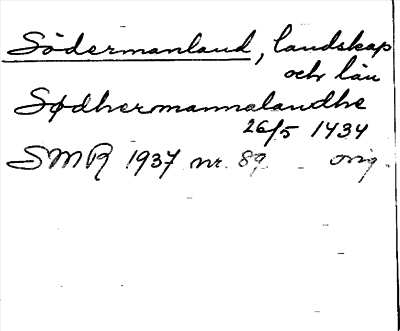 Södermanland, landskap
och län
Sødhermannalandhe
26/5 1434
SMR 1937 nr. 89 orig.